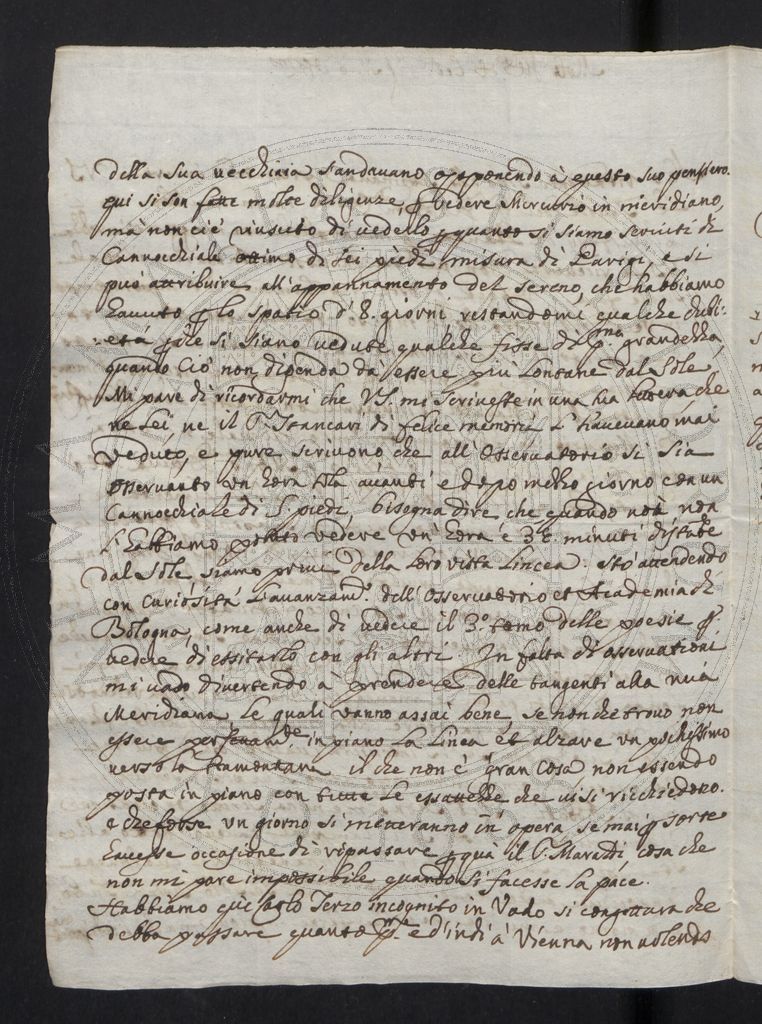 della sua vecchiaia s'andavano opponendo à questo suo pensiero.
qui si son fatte molte diligenze p vedere Mercurio in meridiano,
mà non ci è riuscito di vedello p quanto si siamo serviti di
Cannocchiale ottimo di sei piedi misura di Parigi, e si
può attribuire all'appannamento del sereno, che habbiamo
havuto p lo spatio d'8. giorni restandomi qualche dubi:
:età che si siano vedute qualche fisse di p.ma grandezza,
quando Ciò non dipenda da essere più Lontane dal Sole.
Mi pare di ricordarmi che V.S. mi scrivesse in una sua lettera che
ne Lei ne il S.r Stancari di felice memoria L'havevano mai
veduto, e pure scrivono che all'Osservatorio si sia
osservanto un hora fila avanti e dopo mezzo giorno con un
Cannocchiale di 5. piedi, bisogna dire che quando noi non
L'habbiamo potuto vedere un'hora e 38. minuti distante
dal Sole siamo privi della loro vista Lincea. stò attendendo
con Curiosità L'avanzam.to dell'Osservatorio et Academia di
Bologna, come anche di vedere il 3.o tomo delle poesie p
vedere di esitarlo con gli altri. In falta di osservationi
mi vado divertendo à prendere delle tangenti alla mia
Meridiana Le quali vanno assai bene, se non che trovo non
essere perfettam.te in piano La Linea et alzare un pochissimo
verso la tramontana il che non è gran cosa non essendo
posta in piano con tutte Le esattezze che vi si ricchiedono.
e che forse un giorno si metteranno in opera se mai p sorte
havesse occasione di ripassare p quà il S.r Maraldi, cosa che
non mi pare impossibile quando si facesse la pace.
Habbiamo quì Carlo Terzo incognito in Vado si congettura che
debba passare quanto p.a e d'indi à Vienna non volendo